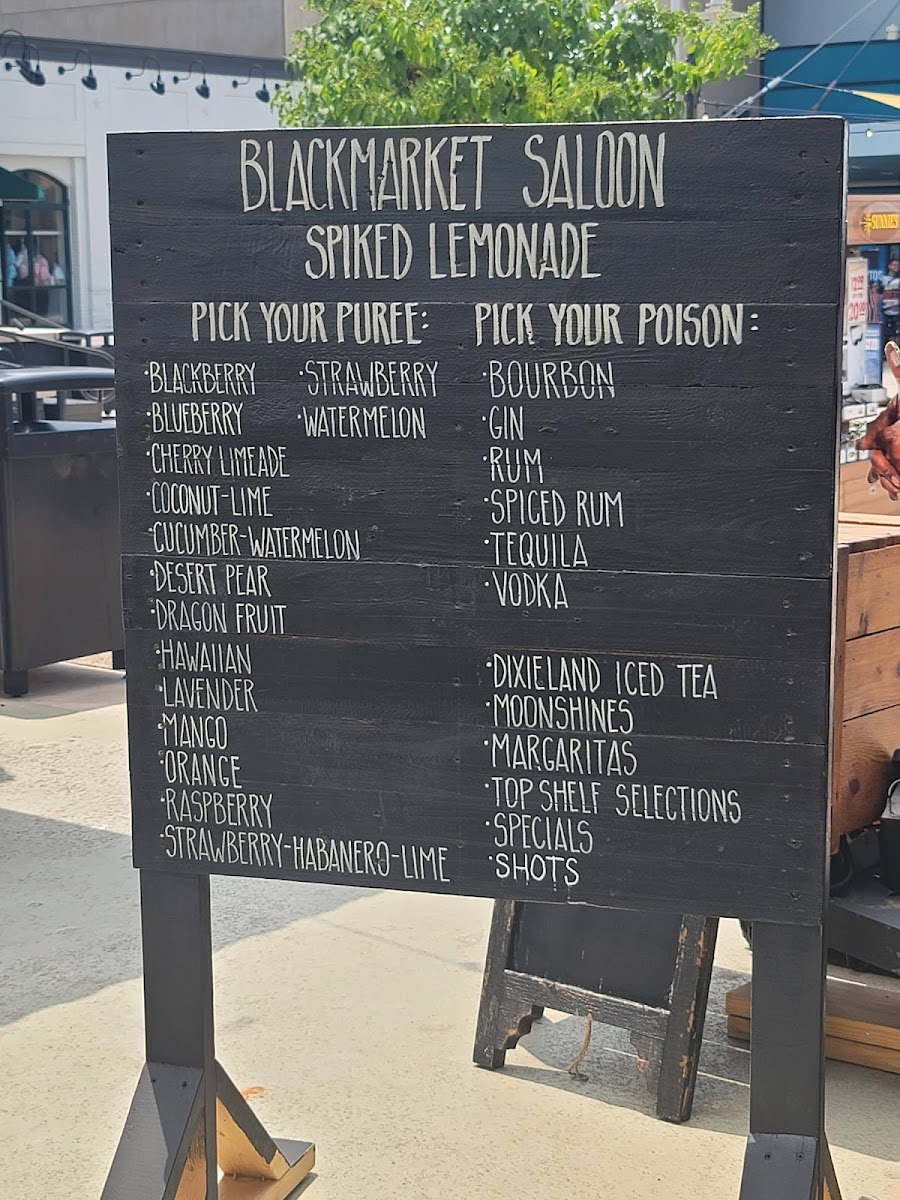 BLACKMARKET SALOON
SPIKED LEMONADE
PICK YOUR PUREE:
·BLACKBERRY
·BLUEBERRY
·CHERRY LIMEADE
·COCONUT-LIME
·CUCUMBER-WATERMELON
·DESERT PEAR
·DRAGON FRUIT
·HAWAIIAN
·LAVENDER
·MANGO
·ORANGE
·RASPBERRY
·STRAWBERRY-HABANERO-LIME
·STRAWBERRY
·WATERMELON
PICK YOUR POISON:
·BOURBON
·GIN
·RUM
·SPICED RUM
·TEQUILA
·VODKA
·DIXIELAND ICED TEA
·MOONSHINES
·MARGARITAS
·TOP SHELF SELECTIONS
·SPECIALS
·SHOTS
SUNNIES